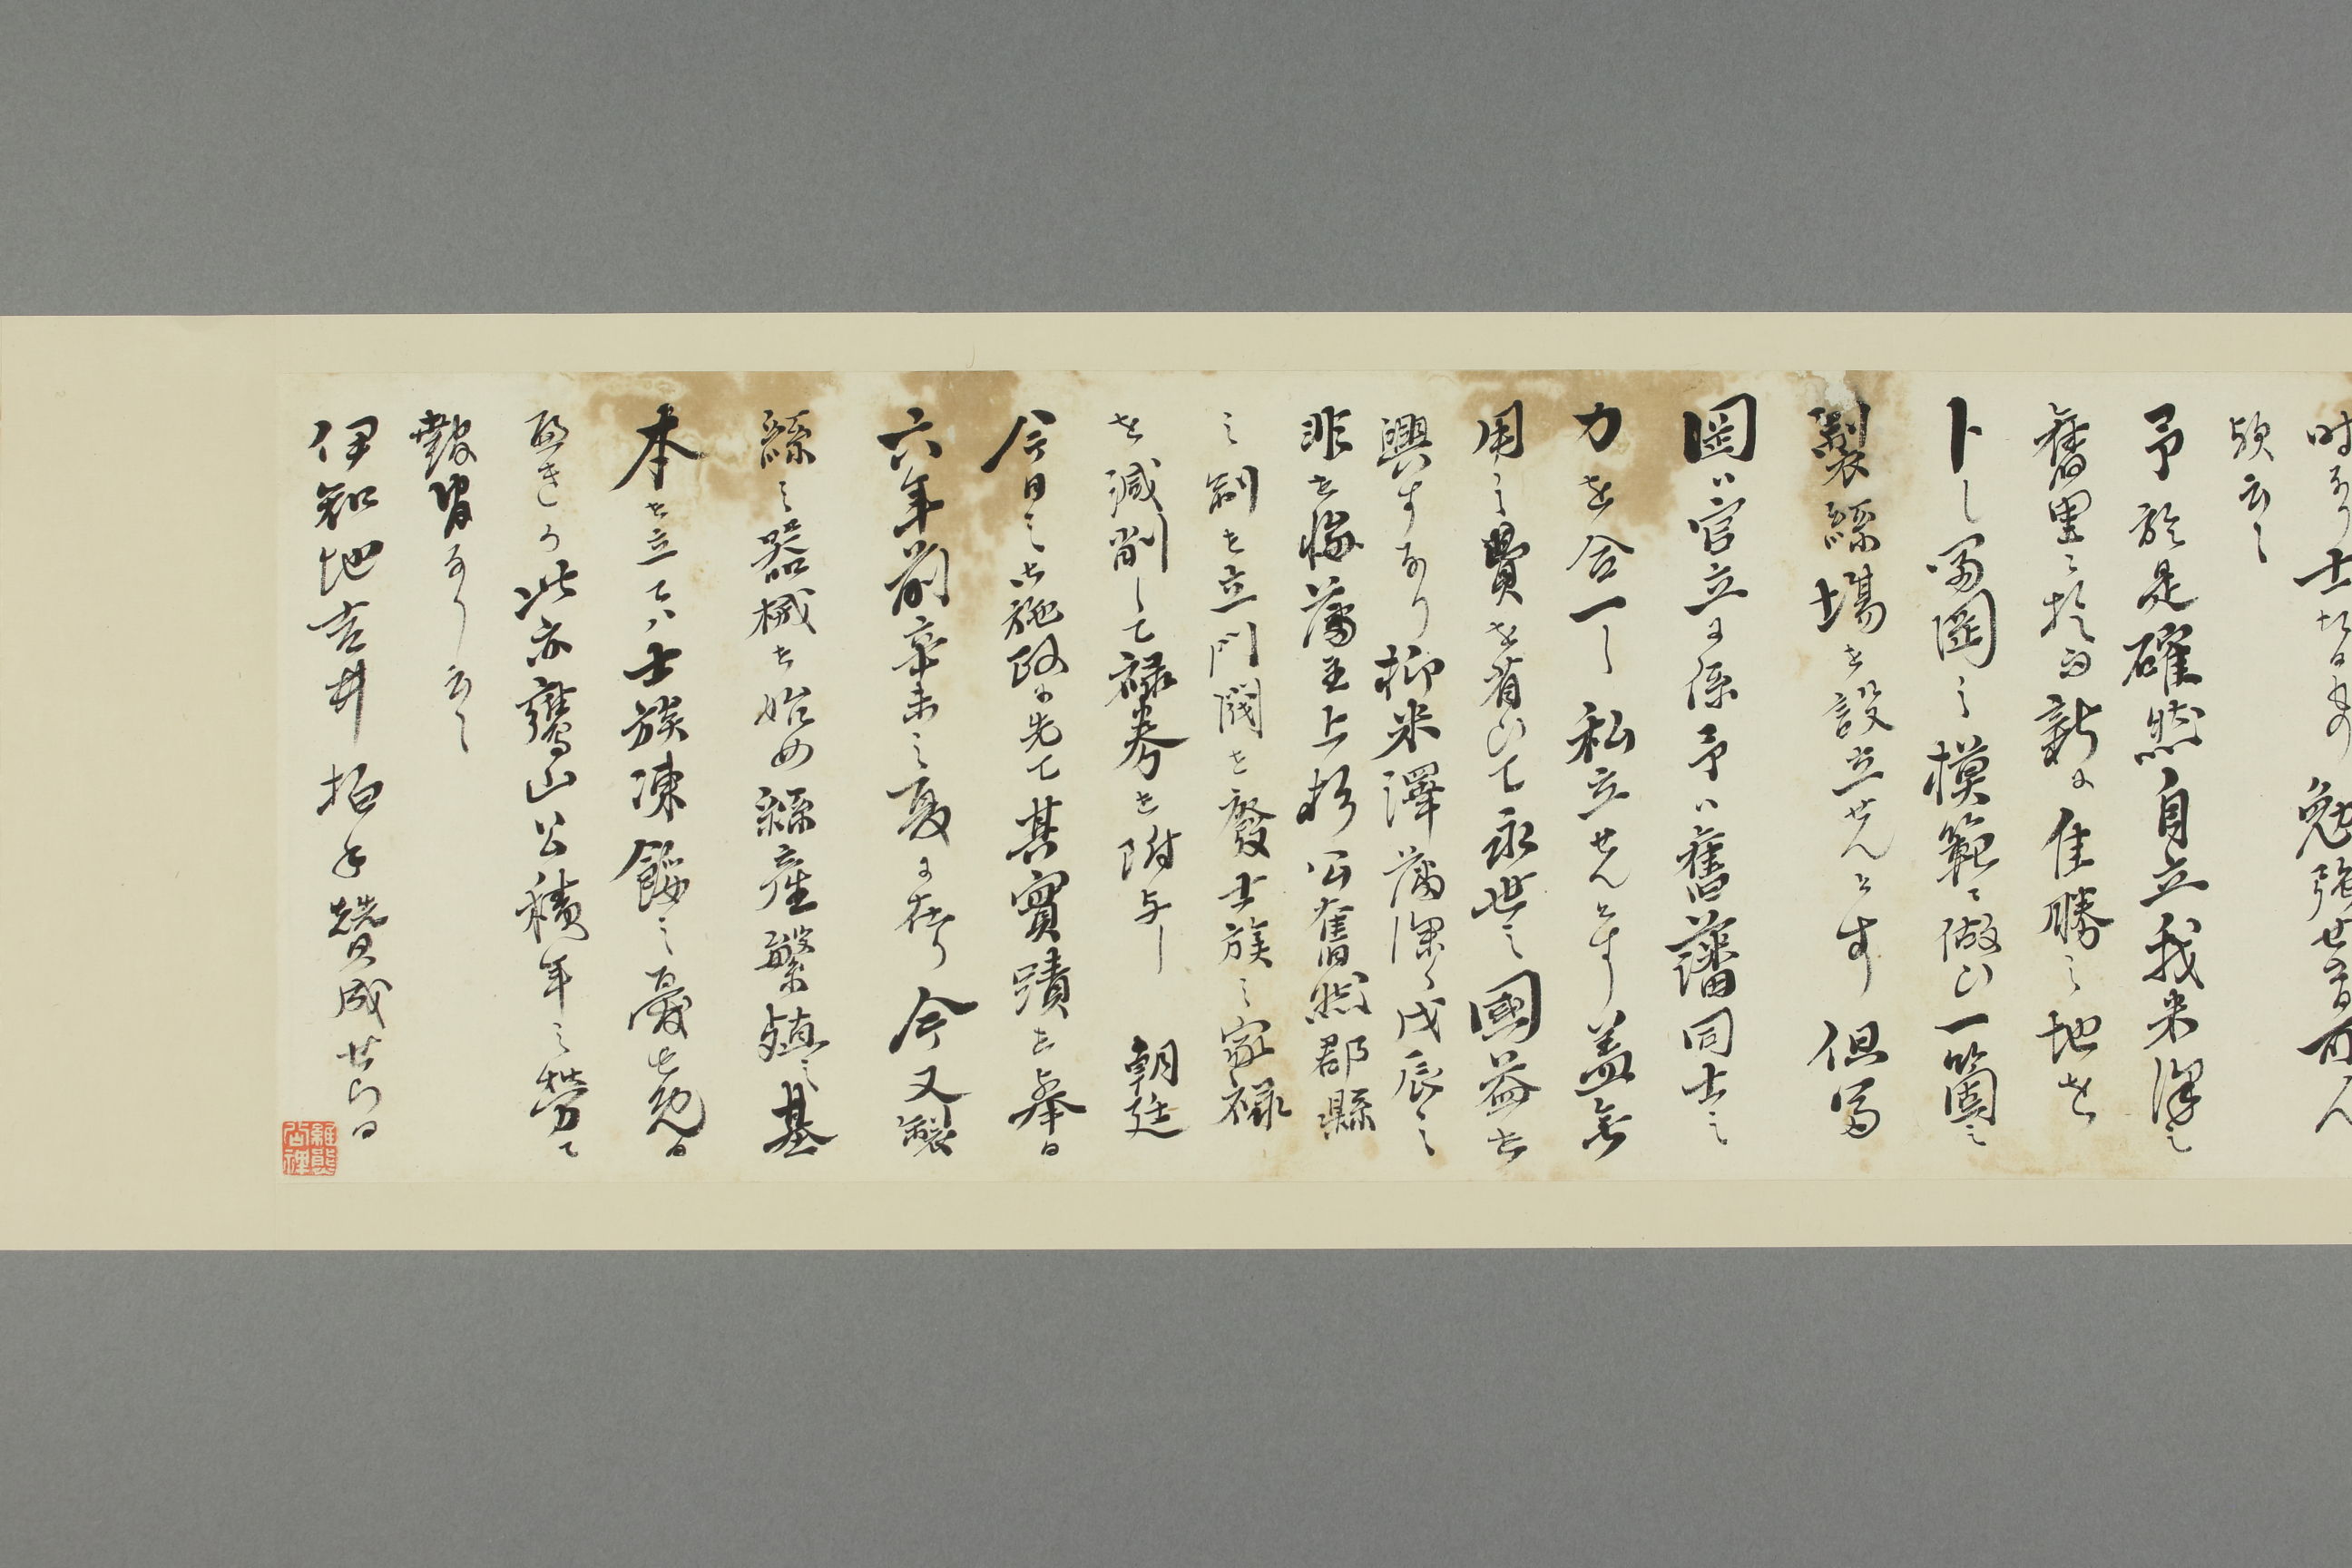 時なり士たる者勉強せざる可ん
歟云々
予於是確然自立我米澤之
舊里ニ於而新に佳勝之地を
卜し冨岡之模範ニ倣ひ一箇之
製絲場を設立せんとす但冨
岡ハ官立に係予ハ舊藩同士之
力を合一し私立せんとす盖無
用之費を省ひて永世之國益を
興すなり抑米澤藩深く戊辰之
非を悔藩主上杉公奮然郡縣
之制を立門閥を廢士族之家禄
を減削して禄券を附与し 朝廷
今日之御施政に先て其實蹟を擧る
六年前辛未之夏に在り今又製
絲之器械を始め絲産繁殖之基
本を立てハ士族凍餒之憂を免る
而已か此亦鷹山公積年之勞ニ
報なり云々
伊知地吉井拍手賛成せらる